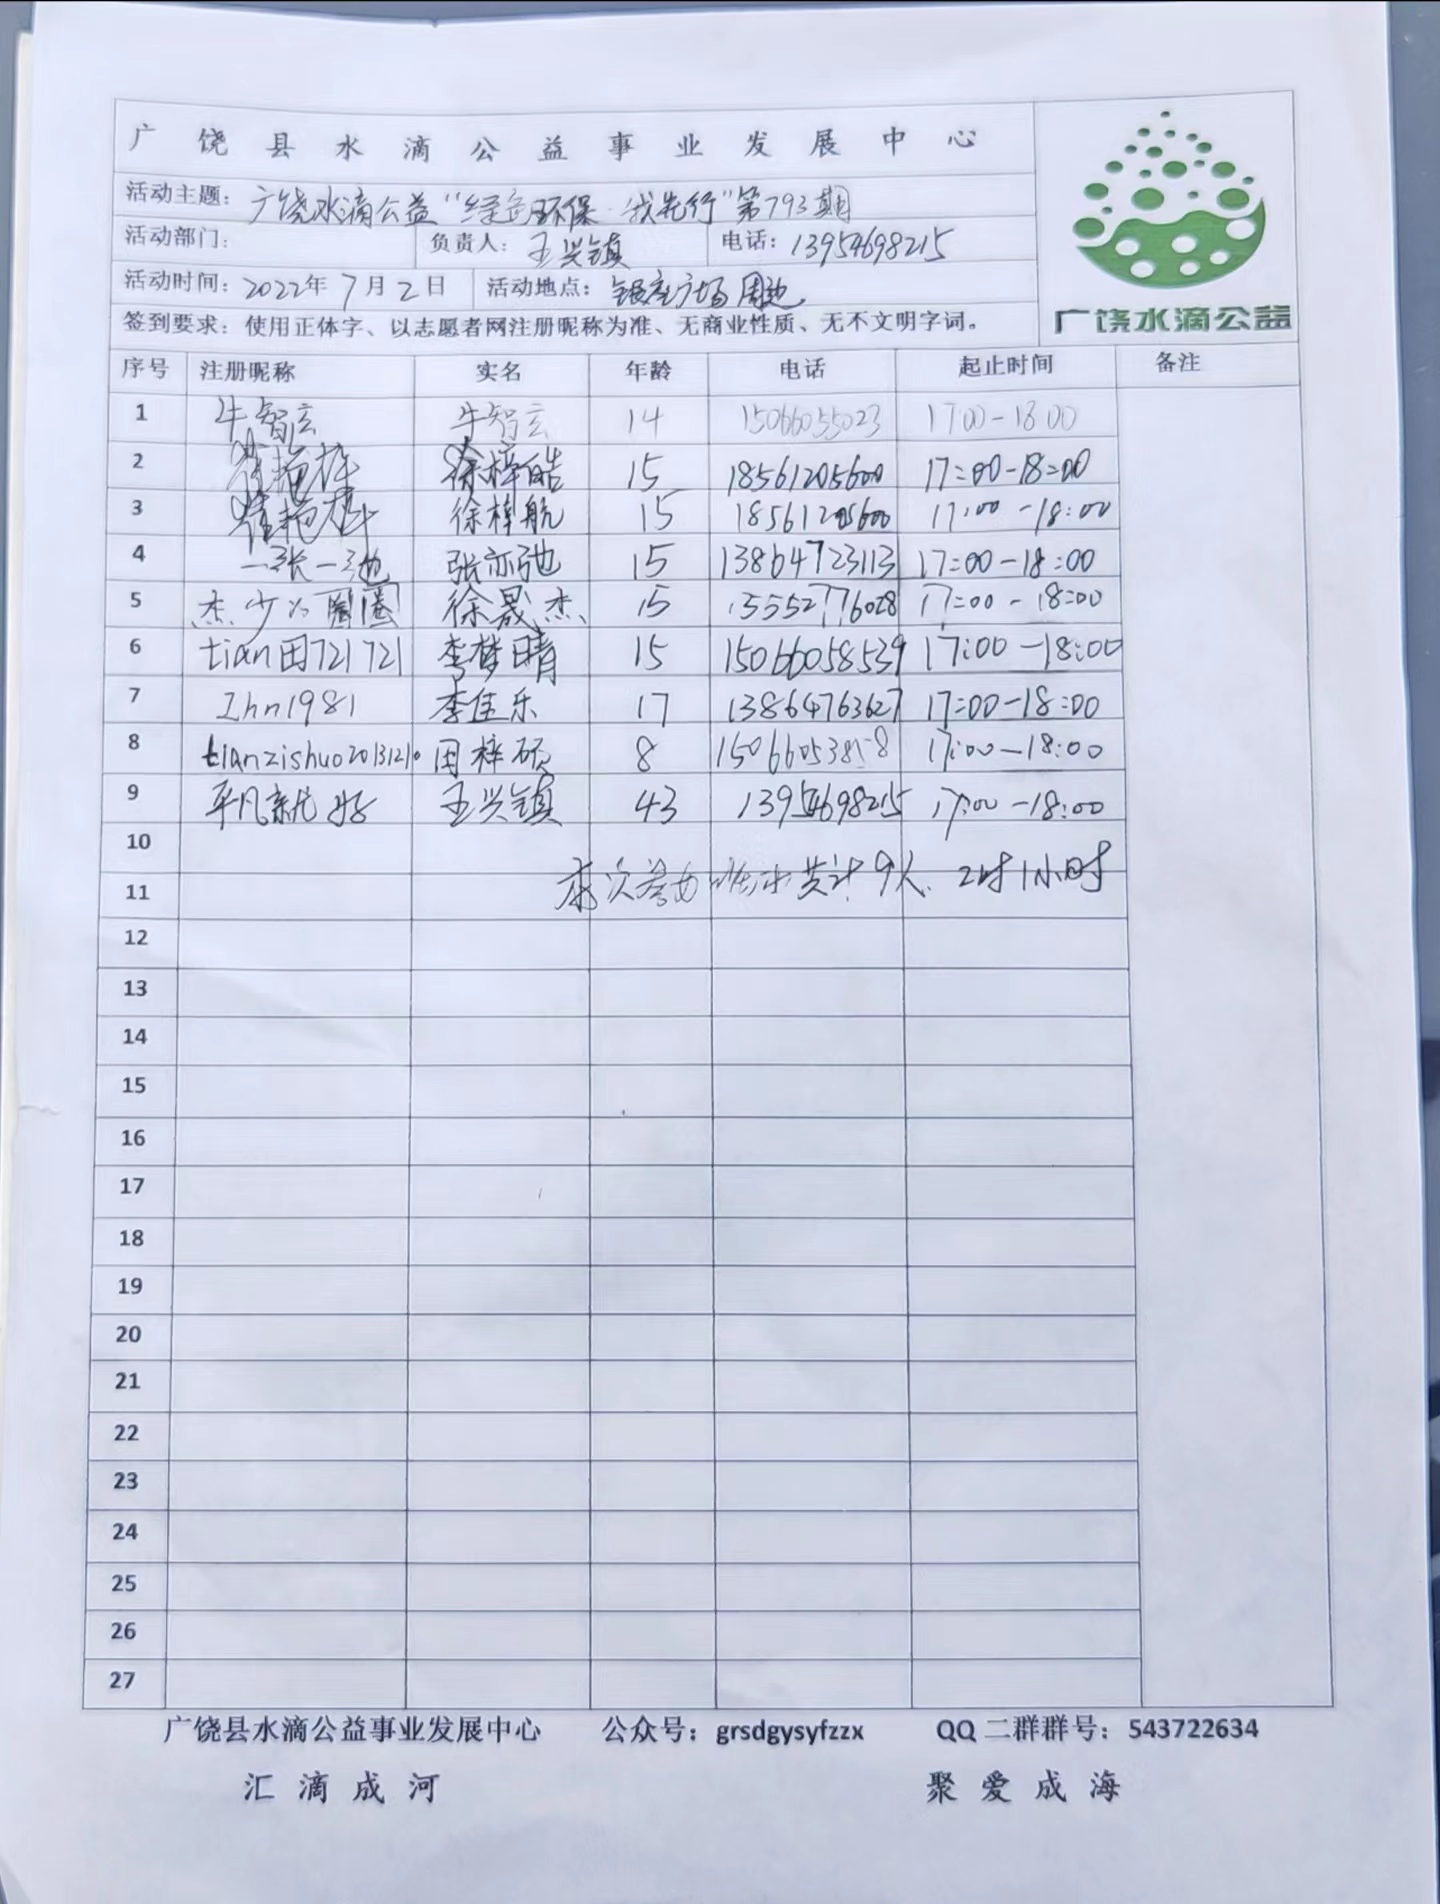 广饶县水滴公益事业发展中心
活动主题：广饶水滴公益“绿色环保·我先行”第793期
活动部门： 负责人：王兴镇 电话：13954698215
活动时间：2022年7月2日 活动地点：银座广场周边
签到要求：使用正体字、以志愿者网注册昵称为准、无商业性质、无不文明字词。
广饶水滴公益
序号 注册昵称 实名 年龄 电话 起止时间 备注
1 牛智玄 牛智玄 14 15066055023 1700-1800
2 徐梓皓 15 18561205600 17:00-18:00
3 徐梓航 15 18561205600 17:00-18:00
4 一张一弛 张亦弛 15 13864723113 17:00-18:00
5 杰少 徐晟杰 15 15552776028 17:00-18:00
6 tian田721721 李梦晴 15 15066058539 17:00-18:00
7 Zhn1981 李佳乐 17 13864763627 17:00-18:00
8 tianzishuo20131210 田梓硕 8 17:00-18:00
9 平凡就好 王兴镇 43 13954698215 17:00-18:00
10
本次参加 共计9人. 1小时
11
12
13
14
15
16
17
18
19
20
21
22
23
24
25
26
27
广饶县水滴公益事业发展中心 公众号：grsdgysyfzzx QQ二群群号：543722634
汇滴成河 聚爱成海